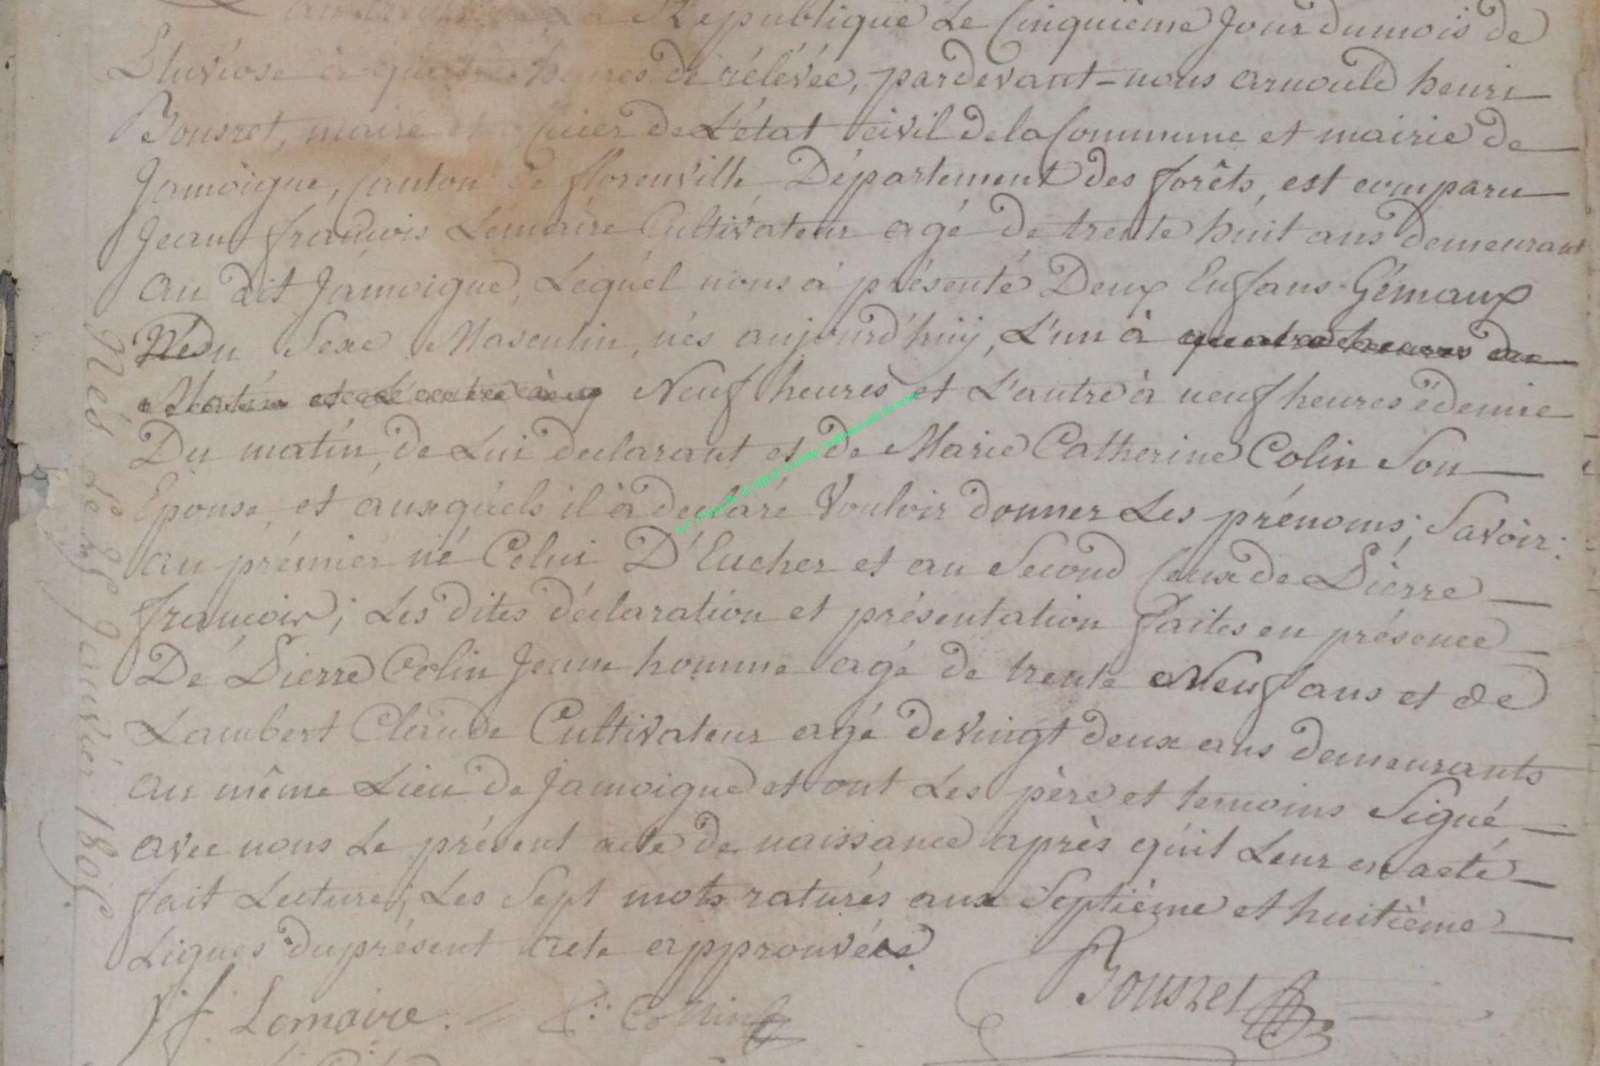 République Le Cinquième Jour du mois de
Pluviose à quatre heures de rélévée, pardevant-nous arnould henri
Bousret, maire et officier de L'état civil de la Commune et mairie de
Jamoigue, Canton de florenville Département des forêts, est comparu
Jean françois Lemaire Cultivateur agé de trente huit ans demeurant
au dit Jamoigue, Lequél nous à présenté Deux Enfans Gémaux
Né du Sexe Masculin, nés aujourd'huÿ, L'un à quatre heures du
Matin et L'autre à Neuf heures et L'autre à neuf heures èdemie
Du matin, de Lui declarant et de Marie Catherine Colin Son
Epouse, et auxquéls il à declaré Vouloir donner Les prénoms, Savoir:
au prémier né Celui D'Eucher et au Second Ceux de Pierre
françois; Les dites déclaration et présentation faites en présence
De Pierre Colin Jeune homme agé de trente Neuf ans et de
Lambert Claude Cultivateur agé de vingt deux ans demeurants
au même Lieu de Jamoigue et ont Les père et temoins Signé
avec nous Le présent acte de naissance après qu'il Leur en a été
fait Lecture; Les Sept mots raturés aux Septième et huitième
Lignes du présent acte approuvées.
J. f. Lemaire. Collin Bousret
Nés Le 25 Janvier 1805